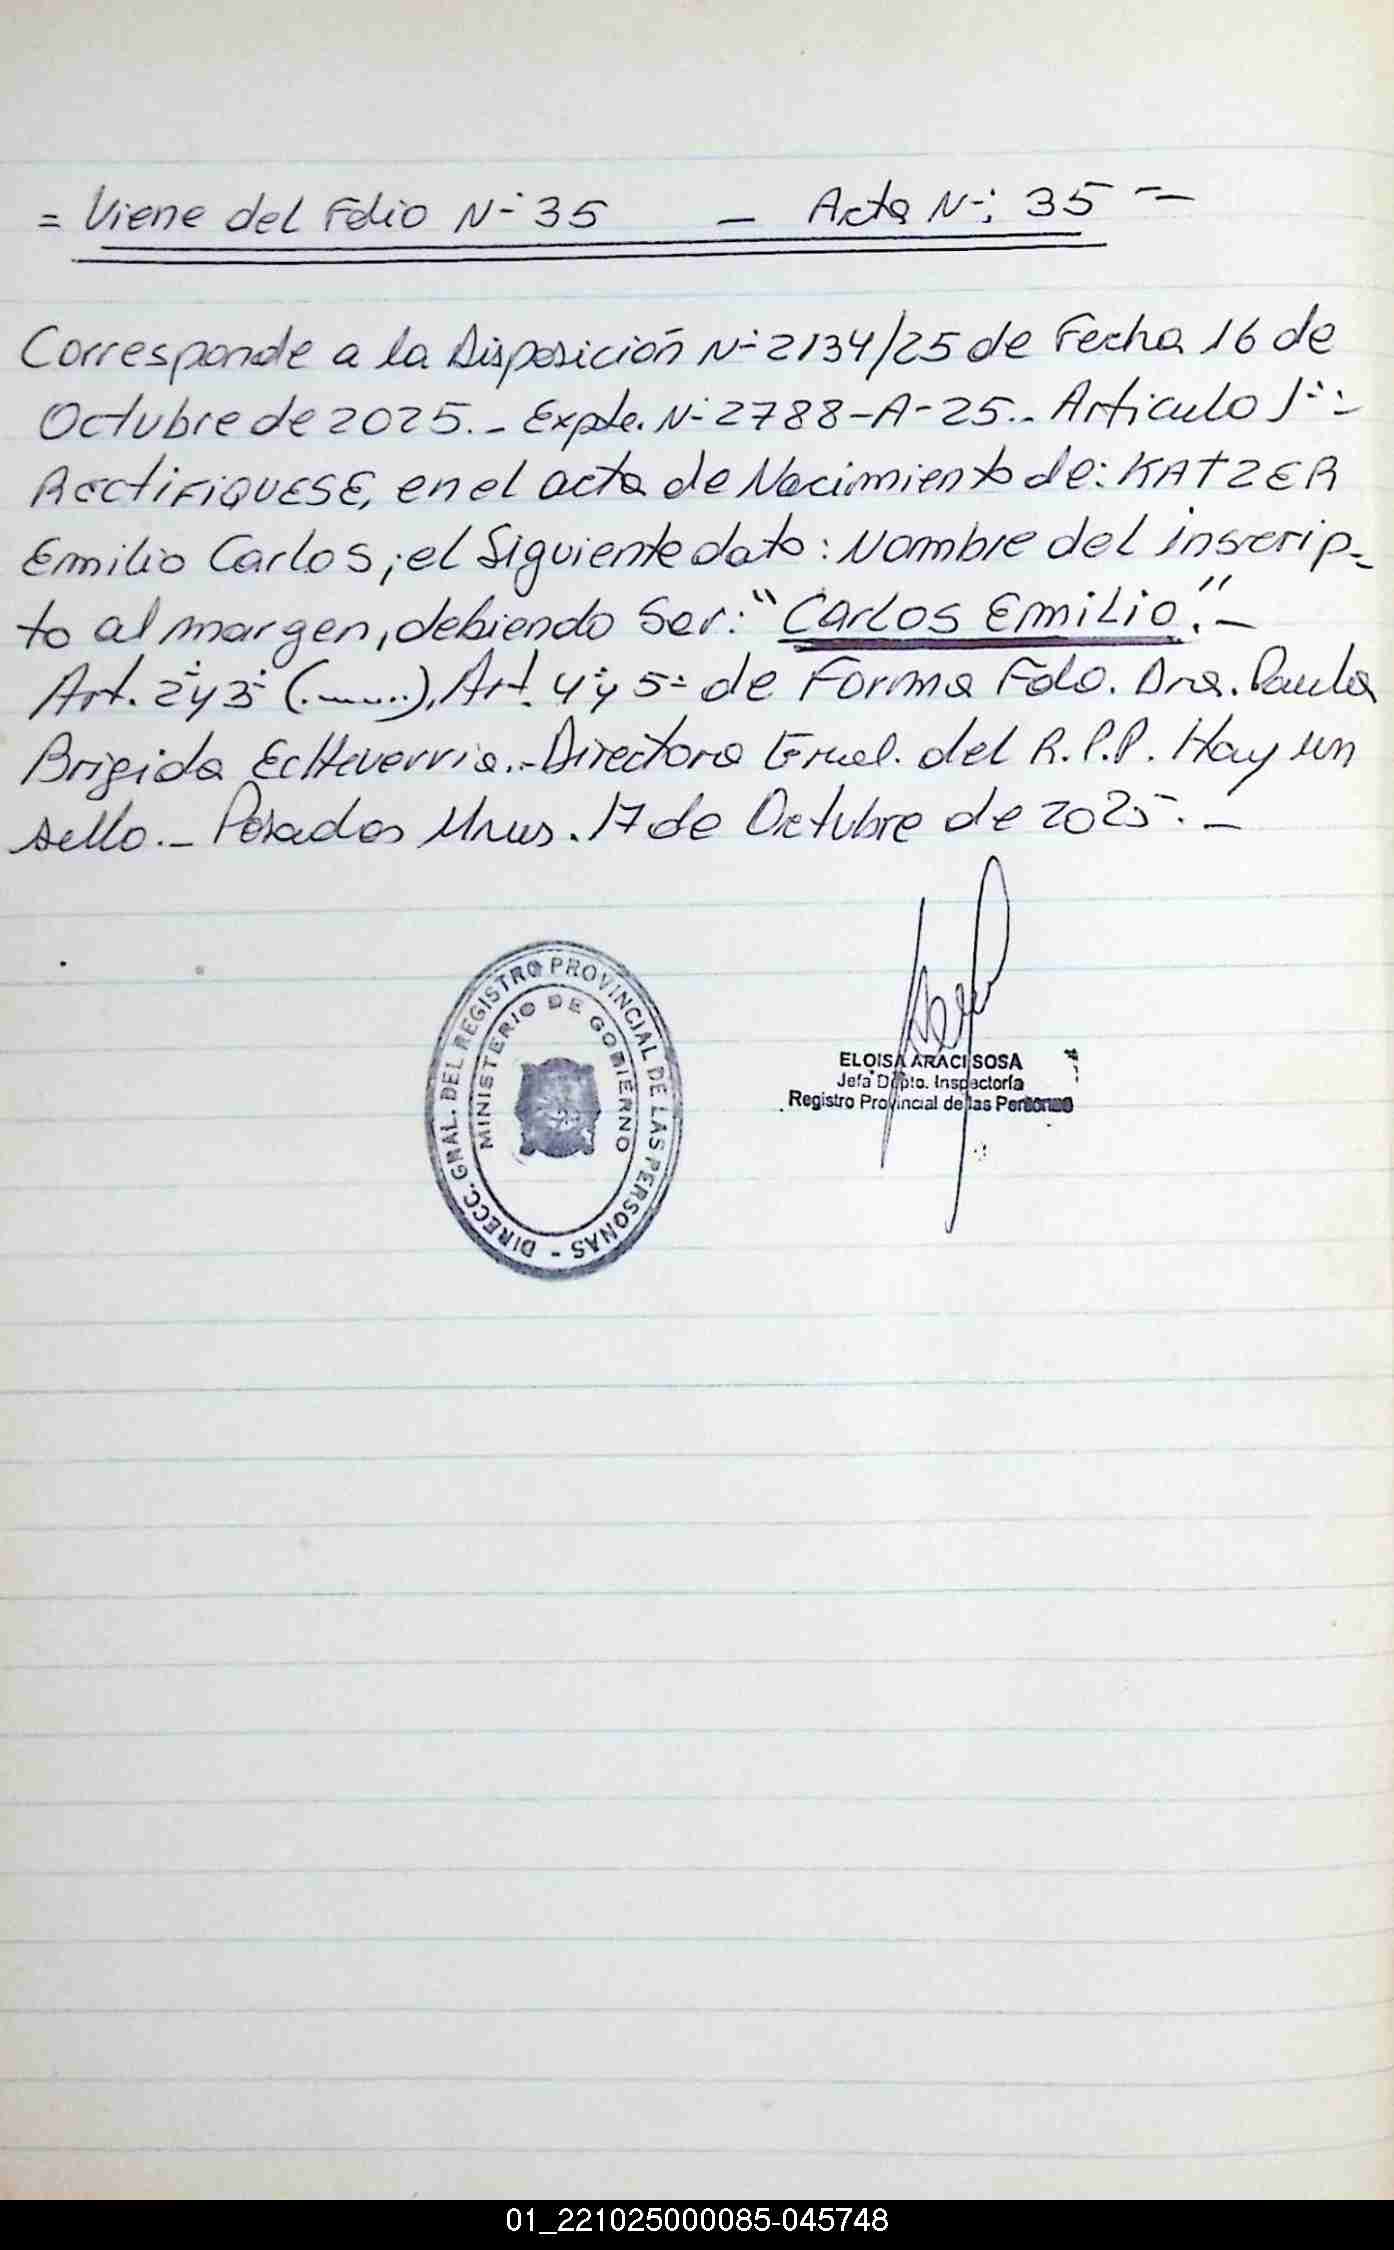 = Viene del Folio N-° 35 - Acta N-°: 35 --
Corresponde a la Disposición N-° 2134/25 de Fecha 16 de
Octubre de 2025.- Expte. N-° 2788-A-25.- Articulo 1°:-
RECTIFIQUESE, en el acta de Nacimiento de: KATZER
Emilio Carlos, el Siguiente dato: Nombre del inscrip-
to al margen, debiendo Ser: "CARLOS EMILIO."-
Art. 2° y 3° (.......), Art. 4° y 5° de Forma Fdo. Dra. Paula
Brigida EcHeverria.- Directora Gral. del R.P.P. Hay un
sello.- Posadas Mnes. 17 de Octubre de 2025.-
DIRECC. GRAL. DEL REGISTRO PROVINCIAL DE LAS PERSONAS -
MINISTERIO DE GOBIERNO
ELOISA ARACI SOSA
Jefa Dpto. Inspectoría
Registro Provincial de las Personas
01_221025000085-045748